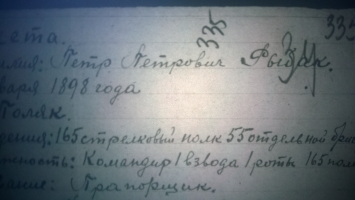 335
кета.
милия: Петр Петрович Рыбак.
варя 1898 года
Поляк.
дения: 165 стрелковый полк 55 отдельной бриг
нность: Командир 1 взвода 1 роты 165 пол
вание: Прапорщик.